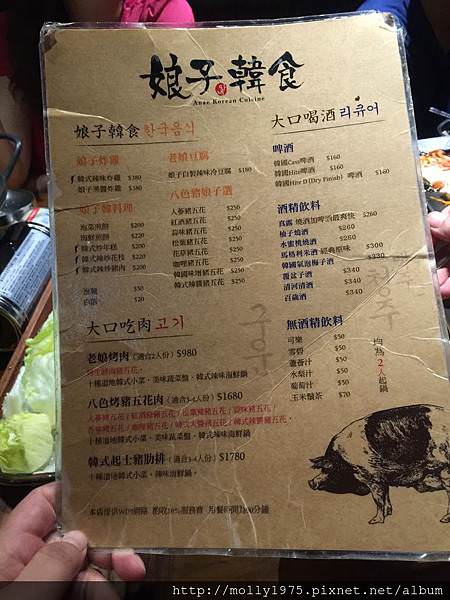 娘子韓食
Anae Korean Cuisine
娘子韓食 한국음식
娘子炸雞
韓式辣味炸雞 $380
娘子黑醬炸雞 $380
娘子韓料理
泡菜煎餅 $200
海鮮煎餅 $200
韓式炒年糕 $200
韓式辣炒花枝 $220
韓式辣炒豬肉 $200
泡麵 $50
白飯 $20
老娘豆腐
娘子自製辣味冷豆腐 $180
八色豬娘子選
人蔘豬五花 $250
紅酒豬五花 $250
蒜味豬五花 $250
松葉豬五花 $250
花草豬五花 $250
咖哩豬五花 $250
韓國味噌豬五花 $250
韓式辣醬豬五花 $250
大口吃肉 고기
老娘烤肉(適合2人份) $980
十種道地韓式小菜、美味蔬菜盤、韓式辣味海鮮鍋
八色烤豬五花肉(適合3-4人份) $1680
人蔘豬五花/紅酒豬五花/松葉豬豬五花/蒜味豬五花/
十種道地韓式小菜、美味蔬菜盤、韓式辣味海鮮鍋
韓式起士豬肋排(適合3-4人份) $1780
十種道地韓式小菜、辣味海鮮鍋。
大口喝酒 리큐어
啤酒
韓國Cass啤酒 $160
韓國Hite啤酒 $160
韓國Hite D (Dry Finish) 啤酒 $160
酒精飲料
真露 燒酒加啤酒最爽快 $260
柚子燒酒 $260
水蜜桃燒酒 $260
馬格利米酒 經典原味 $330
韓國氣泡梅子酒 $390
覆盆子酒 $340
清河清酒 $340
百歲酒 $340
無酒精飲料
可樂 $50
雪碧 $50
蘆薈汁 $50
水梨汁 $50
葡萄汁 $50
玉米鬚茶 $70
均為2人起鍋
本店提供WIFI網路 酌收10%服務費 用餐時間為90分鐘
http://molly1975.pixnet.net/album